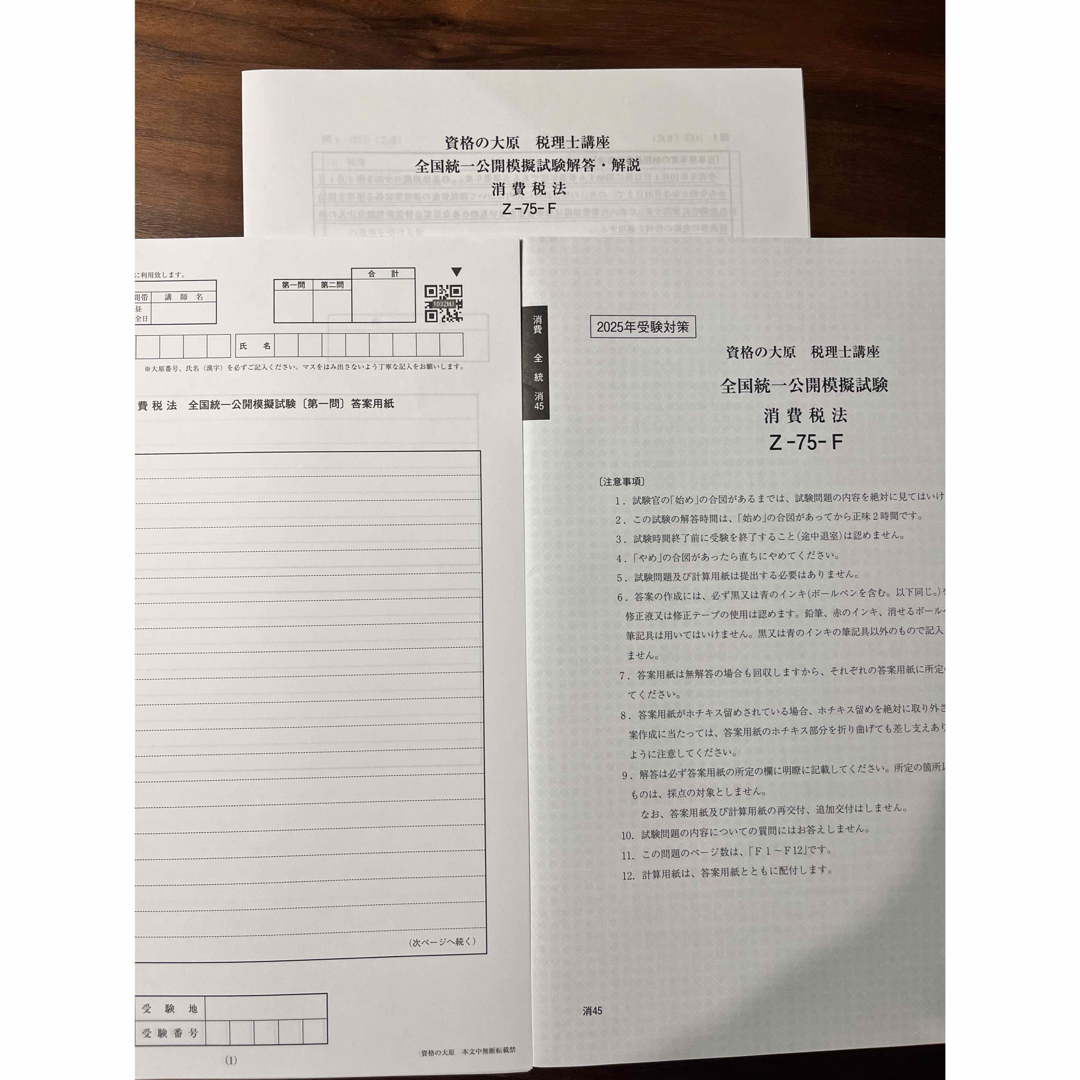 資格の大原 税理士講座
全国統一公開模擬試験解答・解説
消費税法
Z-75-F
に利用致します。
間帯 講師名
昼
全日
第一問 第二問 合計
氏名
※大原番号、氏名（漢字）を必ずご記入ください。マスをはみ出さないよう丁寧な記入をお願いします。
費税法 全国統一公開模擬試験〔第一問〕答案用紙
（次ページへ続く）
受験地
受験番号
(1)
資格の大原 本文中無断転載禁
消費 全統 消45
2025年受験対策
資格の大原 税理士講座
全国統一公開模擬試験
消費税法
Z-75-F
〔注意事項〕
1．試験官の「始め」の合図があるまでは、試験問題の内容を絶対に見てはいけ
2．この試験の解答時間は、「始め」の合図があってから正味2時間です。
3．試験時間終了前に受験を終了すること（途中退室）は認めません。
4．「やめ」の合図があったら直ちにやめてください。
5．試験問題及び計算用紙は提出する必要はありません。
6．答案の作成には、必ず黒又は青のインキ（ボールペンを含む。以下同じ。）を
修正液又は修正テープの使用は認めます。鉛筆、赤のインキ、消せるボール
筆記具は用いてはいけません。黒又は青のインキの筆記具以外のもので記入
ません。
7．答案用紙は無解答の場合も回収しますから、それぞれの答案用紙に所定
てください。
8．答案用紙がホチキス留めされている場合、ホチキス留めを絶対に取り外さ
案作成に当たっては、答案用紙のホチキス部分を折り曲げても差し支えあり
ように注意してください。
9．解答は必ず答案用紙の所定の欄に明瞭に記載してください。所定の箇所以
ものは、採点の対象としません。
なお、答案用紙及び計算用紙の再交付、追加交付はしません。
10．試験問題の内容についての質問にはお答えしません。
11．この問題のページ数は、「F1～F12」です。
12．計算用紙は、答案用紙とともに配付します。
消45